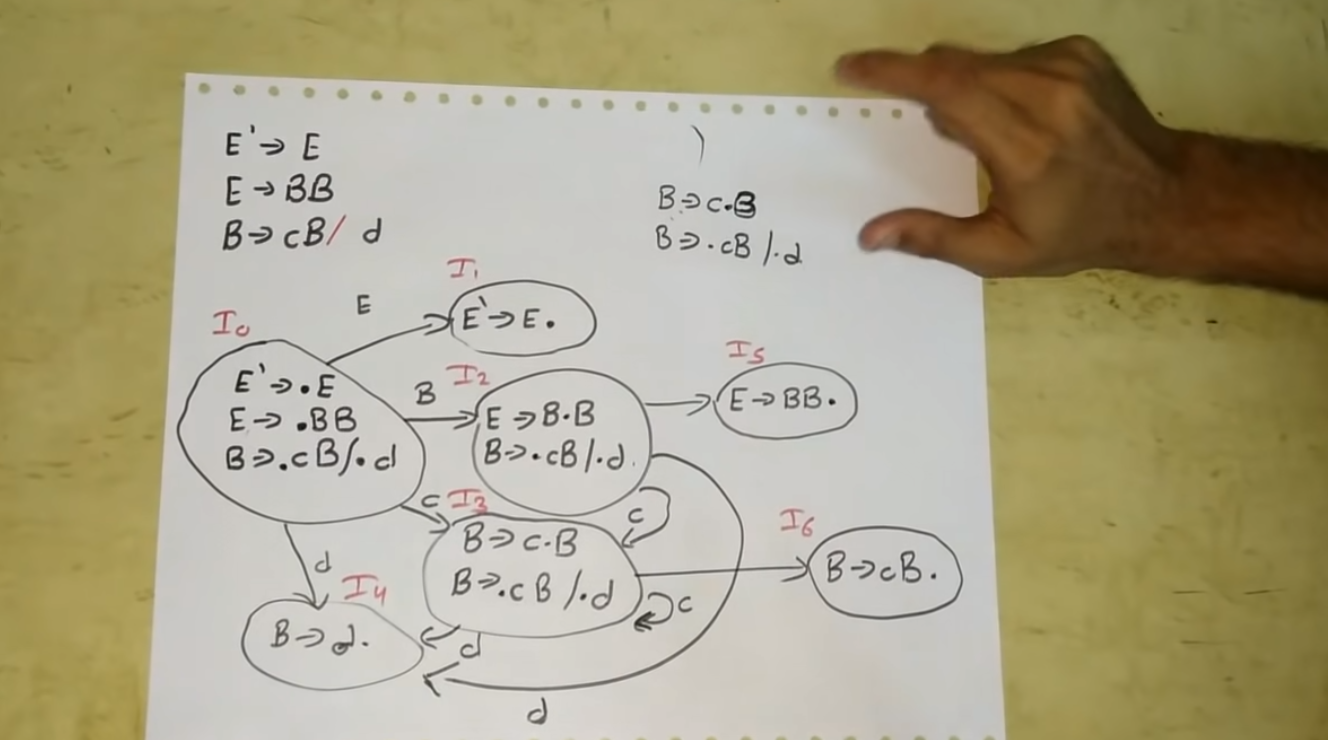 E'→ E
E → BB
B→ cB/ d
)
B→c.B
B→.cB/.d
I0
E'→.E
E→.BB
B→.cB/.d
E
I1
E'→E.
B
I2
E→B.B
B→.cB/.d.
I5
E→BB.
c
I3
B→c.B
B→.cB/.d
c
c
I6
B→cB.
d
I4
B→d.
d
d